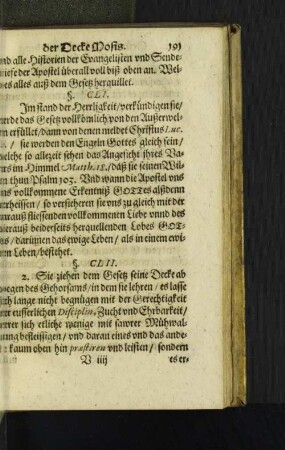 der Decke Mosis. 191
nd alle Historien der Evangelisten vnd Sende-
riefe der Apostel überall voll biß oben an. Wel-
hes alles auß dem Gesetz herquillet.
§. CLI.
Im stand der Herrligkeit / verkündigen sie /
werde das Gesetz vollkömlich von den Außerwel-
en erfüllet / dann von denen meldet Christus Luc.
/ sie werden den Engeln Gottes gleich sein /
welche so allezeit sehen das Angesicht ihres Va-
ers im Himmel Matth. 18. / daß sie seinen Wil-
n thun Psalm 103. Vnd wann die Apostel vns
ins vollkommene Erkentniß GOTTes alßdenn
erheissen / so versicheren sie vns zu gleich mit der
rauß fliessenden vollkommenen Liebe vnnd des
ierauß beiderseits herquellenden Lobes GOT-
s / darinnen das ewige Leben / als in einem ewi-
en Leben / bestehet.
§. CLII.
2. Sie ziehen dem Gesetz seine Decke ab
wegen des Gehorsams / in dem sie lehren / es lasse
ich lange nicht begnügen mit der Gerechtigkeit
er eusserlichen Disciplin, Zucht vnd Ehrbarkeit /
erer sich etliche wenige mit sawrer Mühwal-
ung befleissigen / vnd daran eines vnd das ande-
kaum oben hin præstiren vnd leisten / sondern
V iiij es er-